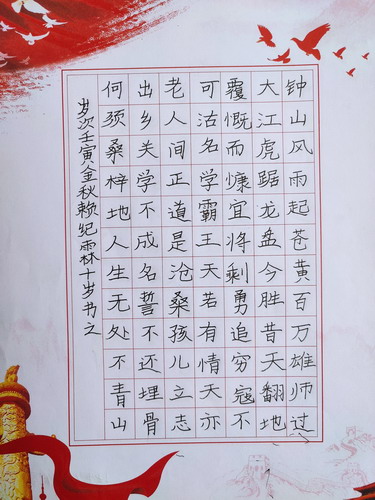 钟山风雨起苍黄百万雄师过
大江虎踞龙盘今胜昔天翻地
覆慨而慷宜将剩勇追穷寇不
可沽名学霸王天若有情天亦
老人间正道是沧桑孩儿立志
出乡关学不成名誓不还埋骨
何须桑梓地人生无处不青山
岁次壬寅金秋赖纪霖十岁书之